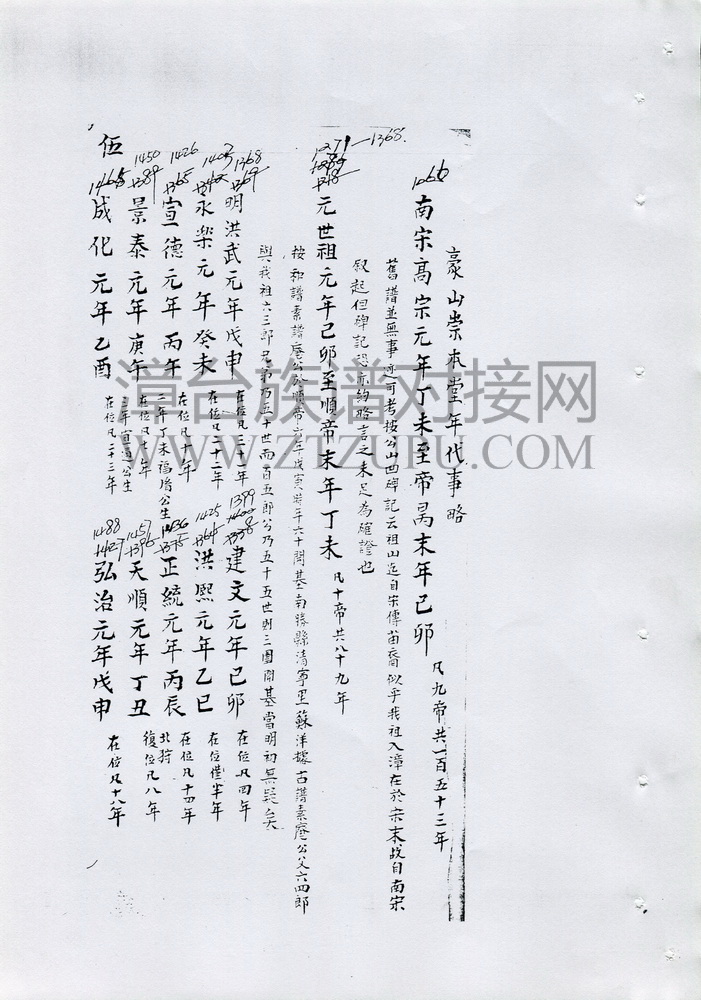 豪山崇本堂年代事略
南宋高宗元年丁未至帝昺末年己卯 凡九帝共一百五十三年
舊譜並無事迹可考按公山囬碑記云祖山迄自宋傳苗裔似乎我祖入漳在於宋末故自南宋
叙起但碑記亦約略言之未足為確證也
1279—1368
元世祖元年己卯至順帝末年丁未 凡十帝共八十九年
按 譜素譜 公於順帝六年戊寅 年六十開基南勝縣清寧里蘇洋據古譜素 公父六四郎
與我祖六三郎兄弟乃五十世而百五郎公乃五十五世則三團開基當明初無疑矣
1368
明洪武元年戊申 在位凡三十一年
1399
建文元年己卯 在位凡四年
1403
永樂元年癸未 在位凡二十二年
1425
洪熙元年乙巳 在位僅半年
1426
宣德元年丙午 在位凡十年
二年丁未福 公生
1436
正統元年丙辰 在位凡十四年
北狩
1450
景泰元年庚午 在位凡七年
三年宣 公生
1457
天順元年丁丑 復位凡八年
1465
成化元年乙酉 在位凡二十三年
1488
弘治元年戊申 在位凡十八年
伍
漳台族谱对接网
WWW.ZTZUPU.COM